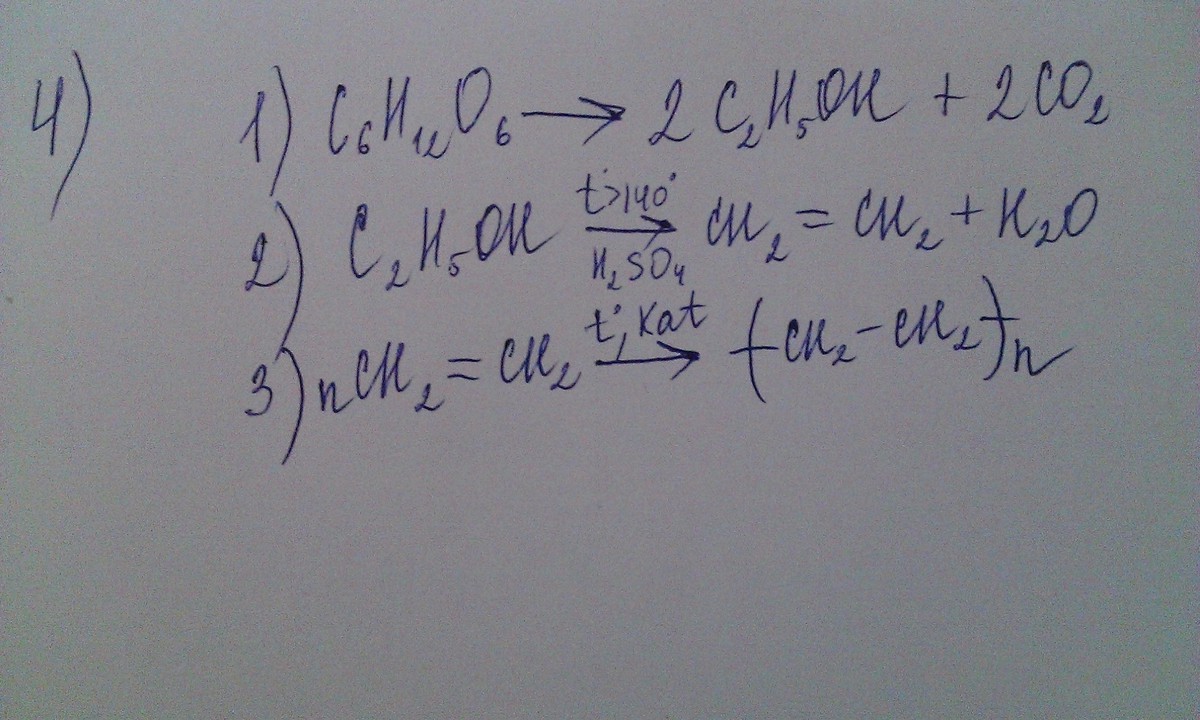 4) 1) C₆H₁₂O₆ → 2 C₂H₅OH + 2CO₂
2) C₂H₅OH t°>140° → H₂SO₄ CH₂ = CH₂ + H₂O
3) nCH₂ = CH₂ t°, Kat → (-CH₂-CH₂-)n